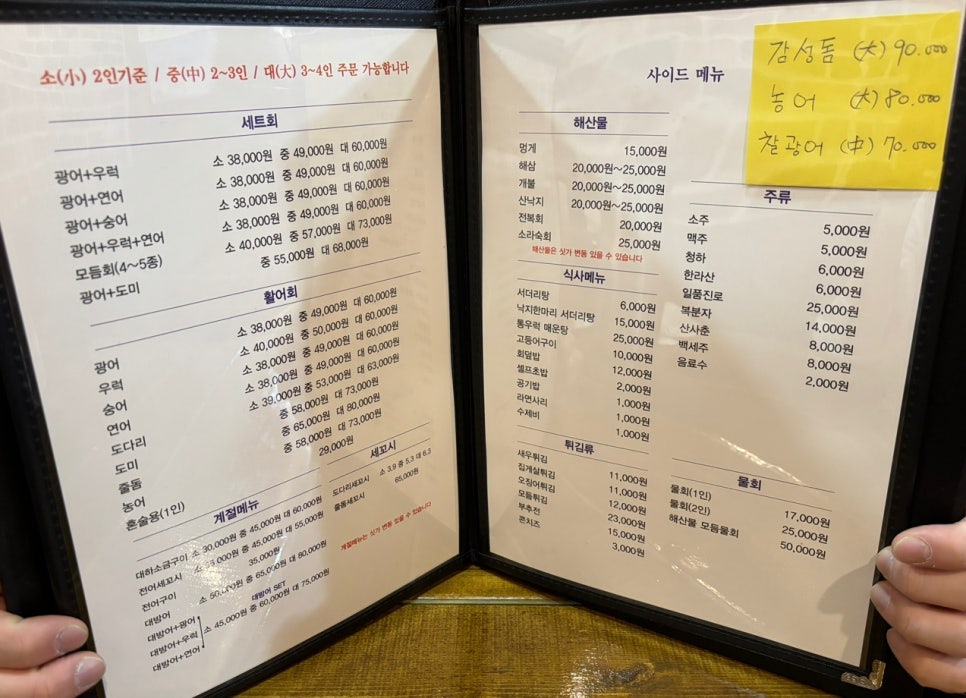 소(小) 2인기준 / 중(中) 2~3인 / 대(大) 3~4인 주문 가능합니다
세트회
광어+우럭 소 38,000원 중 49,000원 대 60,000원
광어+연어 소 38,000원 중 49,000원 대 60,000원
광어+숭어 소 38,000원 중 49,000원 대 60,000원
광어+우럭+연어 소 38,000원 중 49,000원 대 60,000원
모듬회(4~5종) 소 40,000원 중 57,000원 대 73,000원
광어+도미 중 55,000원 대 68,000원
활어회
광어 소 38,000원 중 49,000원 대 60,000원
우럭 소 40,000원 중 50,000원 대 60,000원
숭어 소 38,000원 중 49,000원 대 60,000원
연어 소 38,000원 중 49,000원 대 60,000원
도다리 소 39,000원 중 53,000원 대 63,000원
도미 중 58,000원 대 73,000원
줄돔 중 65,000원 대 80,000원
농어 중 58,000원 대 73,000원
혼술용(1인) 29,000원
계절메뉴
대하소금구이 소 30,000원 중 45,000원 대 60,000원
전어세꼬시 소 35,000원 중 45,000원 대 55,000원
전어구이 35,000원
대방어 소 50,000원 중 65,000원 대 80,000원
대방어 SET
대방어+광어
대방어+우럭 소 45,000원 중 60,000원 대 75,000원
대방어+연어
세꼬시
도다리세꼬시 소 3,9 중 5,3 대 6,3
줄돔세꼬시 65,000원
계절메뉴는 싯가 변동 있을 수 있습니다
사이드 메뉴
해산물
멍게 15,000원
해삼 20,000원~25,000원
개불 20,000원~25,000원
산낙지 20,000원~25,000원
전복회 20,000원
소라숙회 25,000원
해산물은 싯가 변동 있을 수 있습니다
식사메뉴
서더리탕 6,000원
낙지한마리 서더리탕 15,000원
통우럭 매운탕 25,000원
고등어구이 10,000원
회덮밥 12,000원
셀프초밥 2,000원
공기밥 1,000원
라면사리 1,000원
수제비 1,000원
튀김류
새우튀김 11,000원
집게살튀김 11,000원
오징어튀김 12,000원
모듬튀김 23,000원
부추전 15,000원
콘치즈 3,000원
감성돔 (大) 90.000
농어 (大) 80.000
찰광어 (中) 70.000
주류
소주 5,000원
맥주 5,000원
청하 6,000원
한라산 6,000원
일품진로 25,000원
복분자 14,000원
산사춘 8,000원
백세주 8,000원
음료수 2,000원
물회
물회(1인) 17,000원
물회(2인) 25,000원
해산물 모듬물회 50,000원